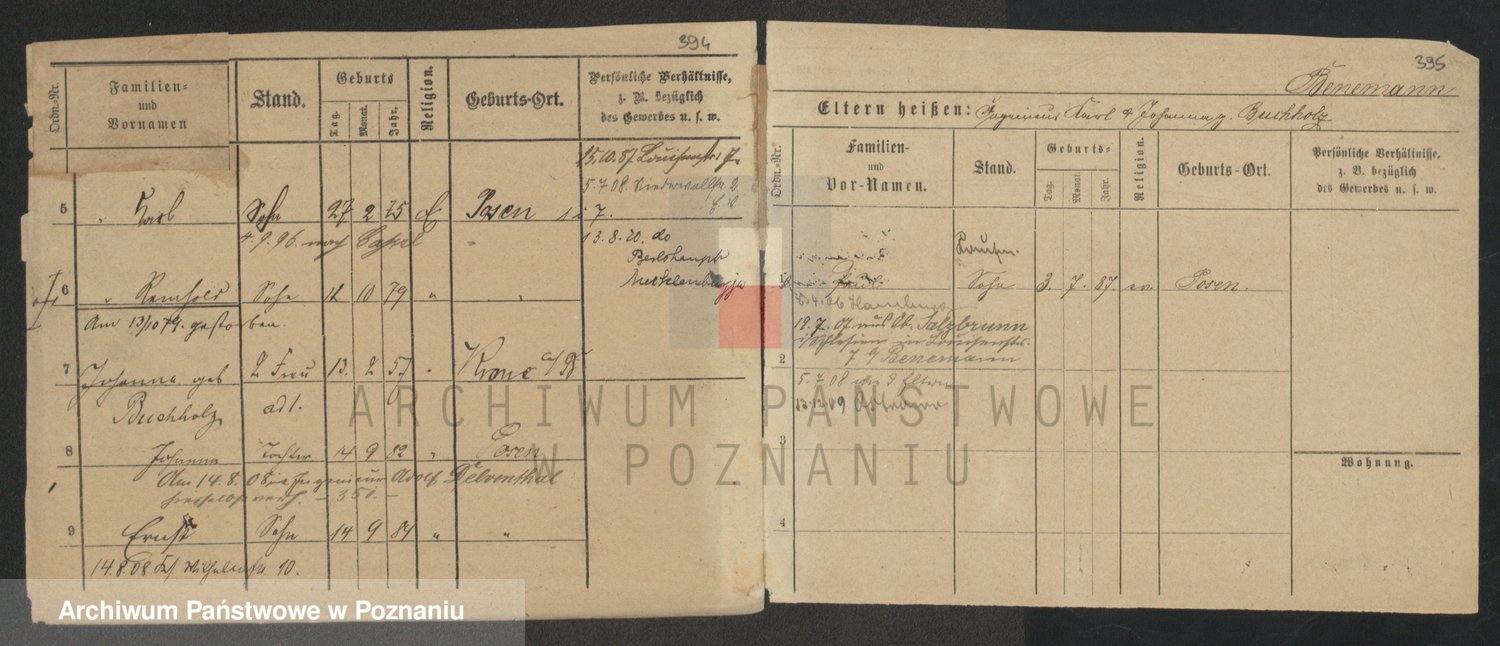 394
Ordn.-Nr.
Familien-
und
Vornamen
Stand.
Geburts
Tag.
Monat.
Jahr.
Religion.
Geburts-Ort.
Persönliche Verhältnisse,
z. B. bezüglich
des Gewerbes u. s. w.
15.10.87 Louisenstr 7
5.7.08. Niederwallstr. 2
5 " Karl Sohn 27 2 75 E Posen
4.9.96. nach Cassel
13.8.20. do
Berlshaupt
Mecklenburg
6 " Reinhold Sohn 12 10 79 " "
Am 13/10 79. gestorben.
7 Johanna geb 2 Frau 13. 2 57 " Krone a/Br
Buchholz ad 1.
8 Johanna Tochter 14 9 82 " Posen
Am 14.8.08 Ingenieur Adolf Delventhal
verh. - 350. -
9 Ernst Sohn 14 9 84 " "
14.8.08 Wilhelmstr. 10.
395
Benemann
Eltern heißen: Ingenieur Karl & Johanna g. Buchholz
Ordn.-Nr.
Familien-
und
Vor-Namen.
Stand.
Geburts-
Tag.
Monat.
Jahr.
Religion.
Geburts-Ort.
Persönliche Verhältnisse,
z. B. bezüglich
des Gewerbes u. s. w.
Sohn 3. 7. 87. ev. Posen.
4.06 Hamburg
19.7.07 aus Salzbrunn
i/Schlesien in Louisenstr.
2 7 Benemann
5.7.08 Eltern
13.12.09
3
4
Wohnung.
ARCHIWUM PAŃSTWOWE
W POZNANIU
Archiwum Państwowe w Poznaniu